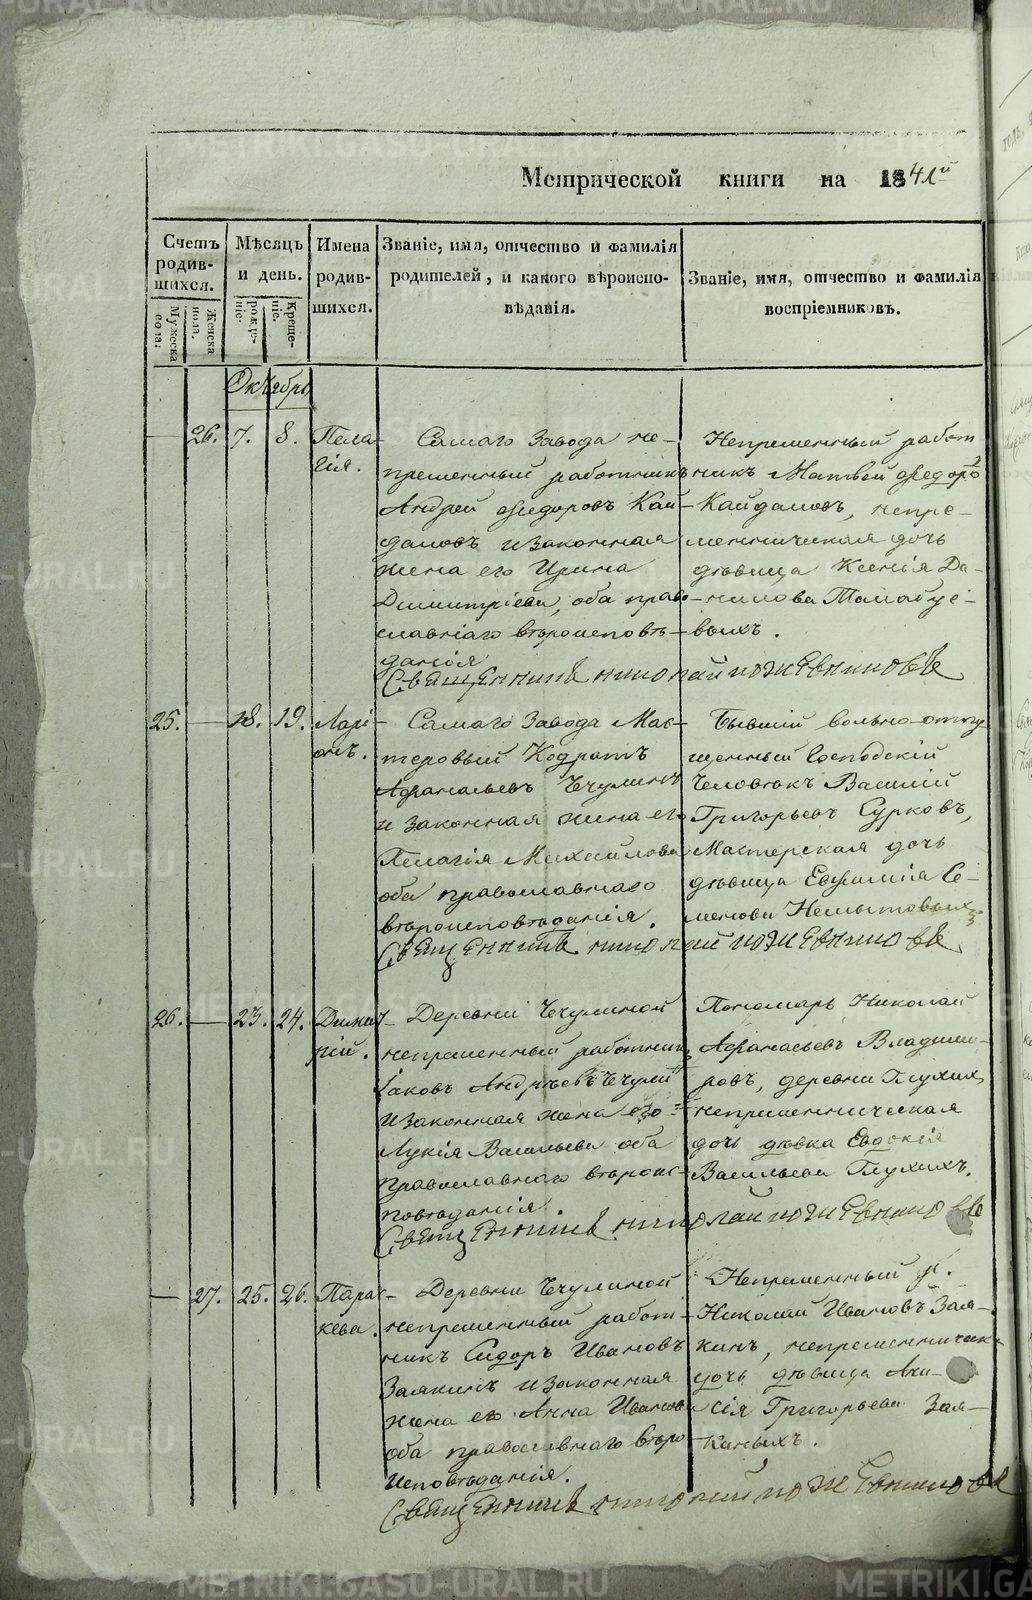 Метрической книги на 1841й
Счетъ родившихся.
Мужеска пола.
Женска пола.
Мѣсяцъ и день.
рожденіе.
Крещеніе.
Имена родившихся.
Званіе, имя, отчество и фамилія родителей, и какого вѣроисповѣданія.
Званіе, имя, отчество и фамилія воспріемниковъ.
Октябрь
26. 7. 8. Пела-
гія.
Самаго Завода не-
пременный работникъ
Андрей Федоровъ Кай-
даловъ и законная
жена его Ирина
Димитріева, оба право-
славнаго вѣроисповѣ-
данія
Непременный работ
никъ Матвей Федоро
Кайдаловъ, непре-
менническая дочь
дѣвица Ксенія Да-
нилова
Священникъ Николай Кожевниковъ
25. 18. 19. Ларі-
онъ.
Самаго Завода Мас-
теровый Кодратъ
Афанасьевъ Чечулинъ
и законная жена его
Пелагія Михайлова
оба православнаго
вѣроисповѣданія.
Бывшій вольно-отпу
щенный Господскій
Человѣкъ Василій
Григорьевъ Сурковъ,
Мастерская дочь
дѣвица Евфимія Се-
менова
Священникъ Николай Кожевниковъ
26. 23. 24. Димит-
рій.
Деревни Чечулиной
непременный работникъ
Іаковъ Андрѣевъ Чечулинъ
и законная жена его
Лукія Васильева оба
православнаго вѣроис-
повѣданія
Пономарь Николай
Афанасьевъ Владими-
ровъ, деревни Глухих
непременническая
дочь дѣвка Евдокія
Васильева Глухихъ.
Священникъ Николай Кожевниковъ
27. 25. 26. Парас-
кева.
Деревни Чечулиной
непременный работ-
никъ Сидоръ Ивановъ
Заякинъ и законная
жена его Анна Иванова
оба православнаго вѣро
исповѣданія.
Непременный р.
Николай Ивановъ Зая-
кинъ, непременническ.
дочь дѣвица
Григорьева Зая-
киныхъ.
Священникъ Николай Кожевниковъ
METRIKI.GASO-URAL.RU